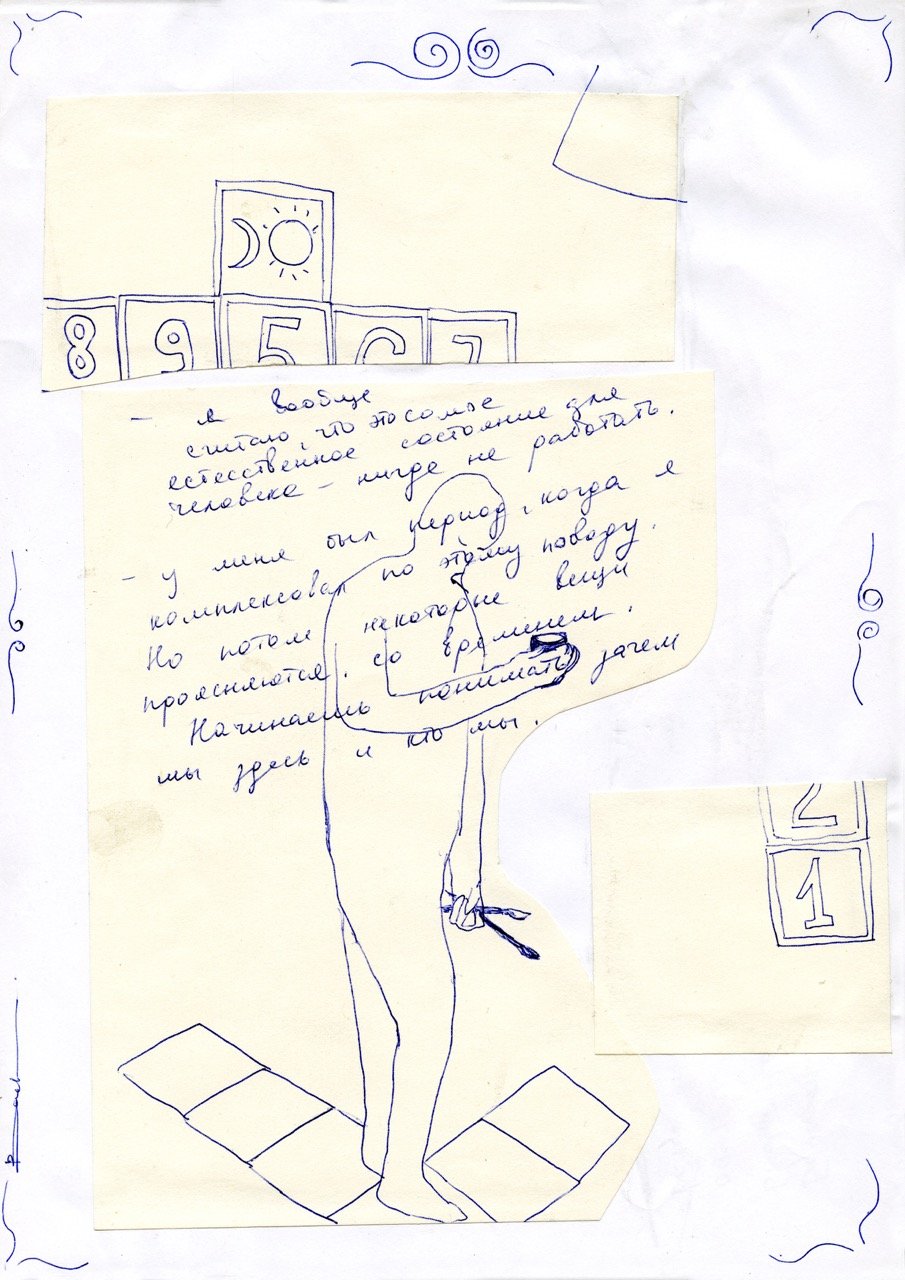 8 9 5 6 7
- я вообще
считаю, что это самое
естесственное состояние для
человека - нигде не работать.
- у меня был период, когда я
комплексовал по этому поводу.
Но потом некоторые вещи
проясняются со временем.
Начинаешь понимать зачем
мы здесь и кто мы.
2
1